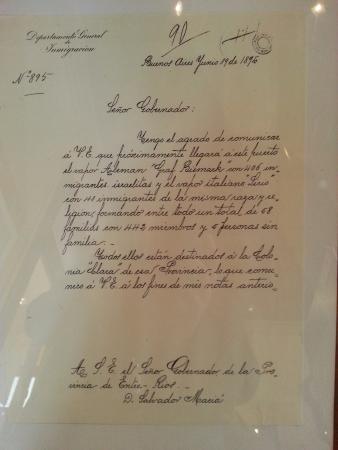 Departamento General
de
Inmigracion
90
Nº 895
Buenos Aires Junio 19 de 1896
Señor Gobernador:
Tengo el agrado de comunicar
á V.E. que próximamente llegará a este puerto
el vapor Aleman "Graf Bismark" con 406 in-
migrantes israelitas y el vapor italiano "Sirio"
con 41 inmigrantes de la misma raza y re-
ligion, formando entre todo un total de 68
familias con 442 miembros y 5 personas sin
familia.-
Todos ellos están destinados á la Colo-
nia "Clara" de esa Provincia, lo que comu-
nico á V.E. á los fines de mis notas anterio-
A S.E. el Señor Gobernador de la Pro-
vincia de Entre-Rios.
D. Salvador Maciá